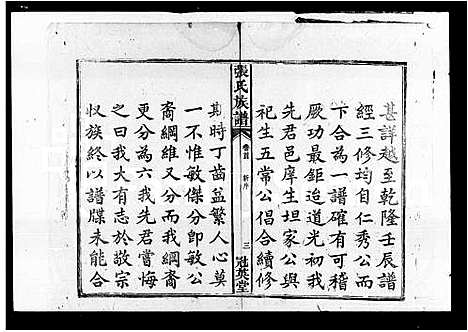 甚詳越至乾隆壬辰譜
經三修均自仁秀公而
下合為一譜確有可稽
厥功最鉅迨道光初我
先君邑庠生坦家公與
祀生五常公倡合續修
張氏族譜
卷首
新序
三
冠英堂
斯時丁齒益繁人心莫
一不惟敏傑分卽敏公
裔綱維又分我綱裔
更分為六我先君嘗悔
之曰我大有志於敬宗
収族終以譜牒未能合